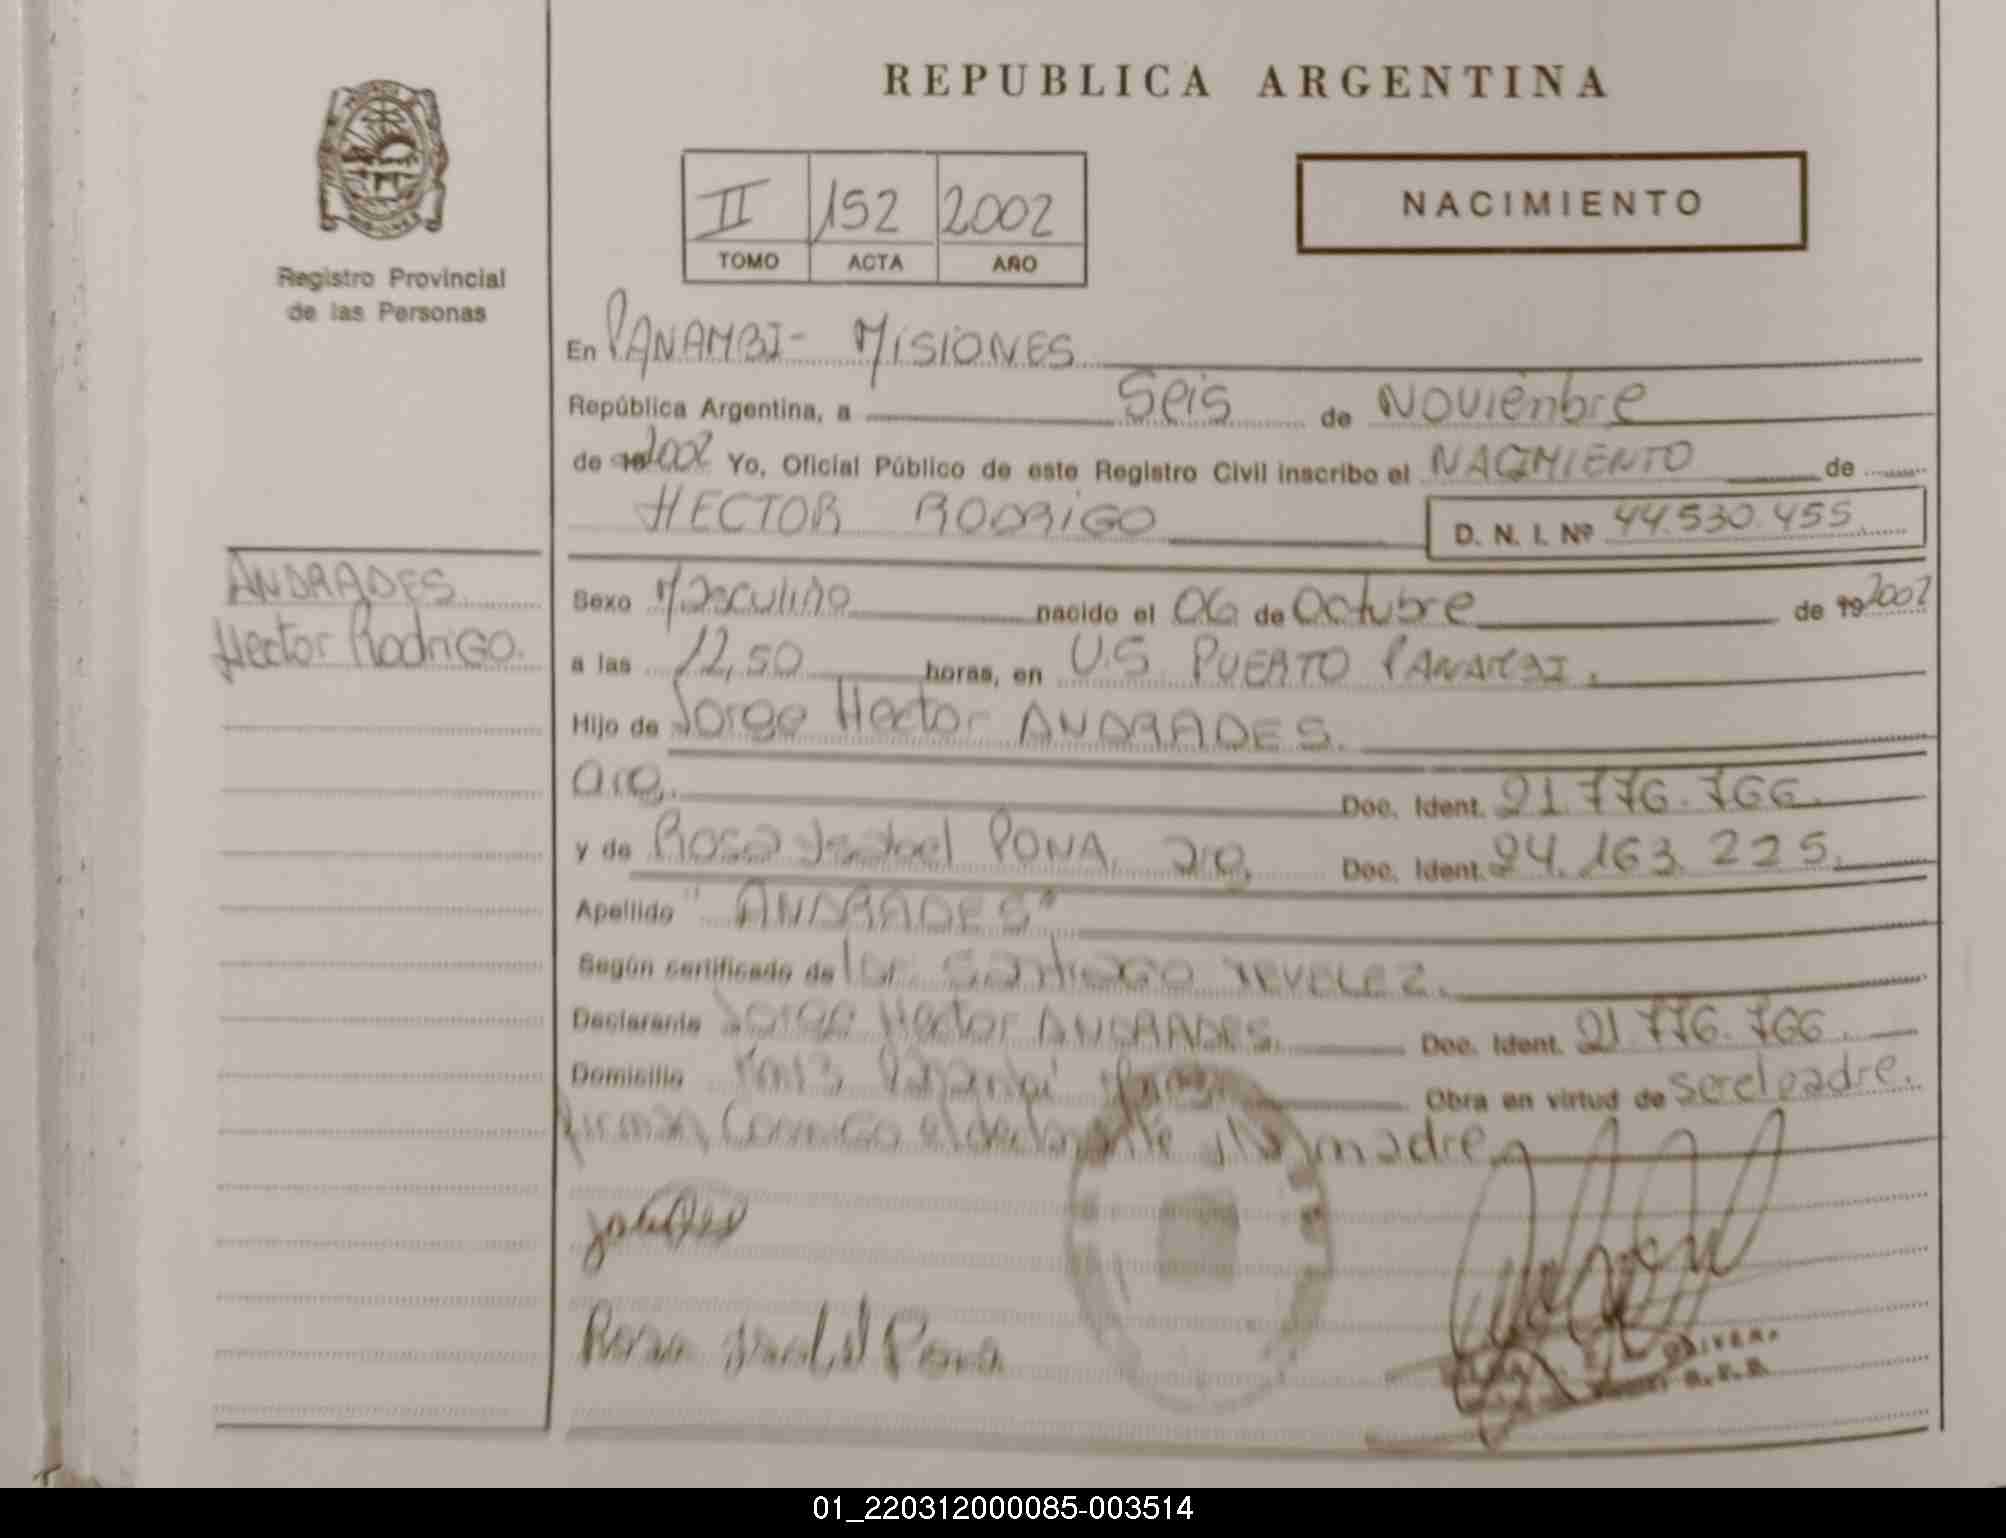 REPUBLICA ARGENTINA
II 152 2002
TOMO ACTA AÑO
NACIMIENTO
Registro Provincial
de las Personas
En PANAMBI - MISIONES
República Argentina, a Seis de Noviembre
de 19 2002 Yo, Oficial Público de este Registro Civil inscribo el NACIMIENTO de
HECTOR RODRIGO
D. N. I. Nº 44.530.455
ANDRADES
Hector RodriGO.
Sexo Masculino nacido el 06 de Octubre de 19 2002
a las 12,50 horas, en U.S. PUERTO PANAMBI.
Hijo de Jorge Hector ANDRADES.
arg. Doc. Ident. 21.776.766.
y de Rosa Isabel PONA, arg. Doc. Ident. 24.163.225.
Apellido "ANDRADES"
Según certificado de Santiago
Declarante Jorge Hector ANDRADES. Doc. Ident. 21.776.766.
Domicilio Panambi Obra en virtud de ser el padre.
Firman Conmigo el declarante y la madre
Rosa Isabel Pona
01_220312000085-003514